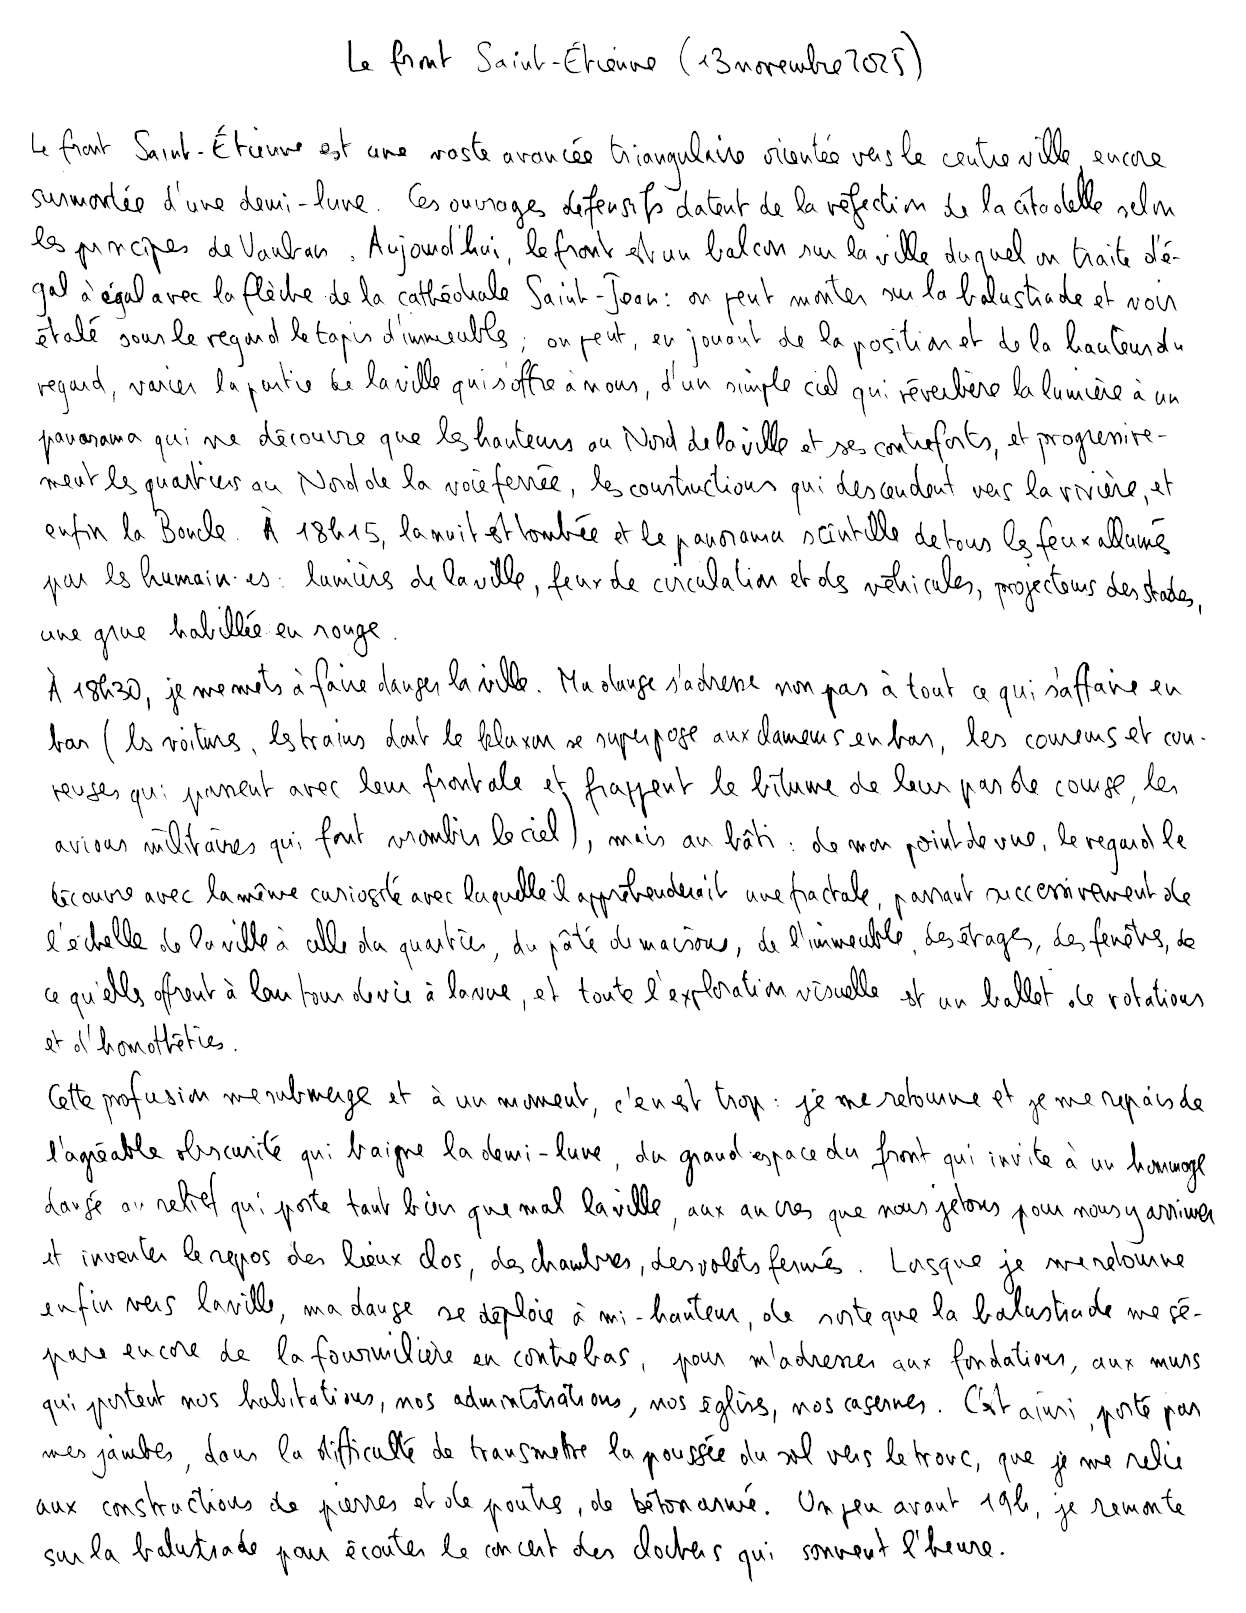 Le front Saint-Étienne (13 novembre 2025)
Le front Saint-Étienne est une vaste avancée triangulaire orientée vers le centre ville, encore
surmontée d'une demi-lune. Ces ouvrages défensifs datent de la réfection de la citadelle selon
les principes de Vauban. Aujourd'hui, le front est un balcon sur la ville duquel on traite d'é-
gal à égal avec la flèche de la cathédrale Saint-Jean : on peut monter sur la balustrade et voir
étalé sous le regard le tapis d'immeubles ; on peut, en jouant de la position et de la hauteur du
regard, varier la partie de la ville qui s'offre à nous, d'un simple ciel qui réverbère la lumière à un
panorama qui ne découvre que les hauteurs au Nord de la ville et ses contreforts, et progressive-
ment les quartiers au Nord de la voie ferrée, les constructions qui descendent vers la rivière, et
enfin la Boucle. À 18h15, la nuit est tombée et le panorama scintille de tous les feux allumés
par les humain·es : lumières de la ville, feux de circulation et des véhicules, projecteurs des stades,
une grue habillée en rouge.
À 18h30, je me mets à faire danser la ville. Ma danse s'adresse non pas à tout ce qui s'affaire en
bas (les voitures, les trains dont le klaxon se superpose aux clameurs en bas, les coureurs et cou-
reuses qui passent avec leur frontale et frappent le bitume de leur pas de course, les
avions militaires qui font vrombir le ciel), mais au bâti : de mon point de vue, le regard le
découvre avec la même curiosité avec laquelle il appréhenderait une fractale, passant successivement de
l'échelle de la ville à celle du quartier, du pâté de maisons, de l'immeuble, des étages, des fenêtres, de
ce qu'elles offrent à leur tour de vie à la vue, et toute l'exploration visuelle est un ballet de rotations
et d'homothéties.
Cette profusion me submerge et à un moment, c'en est trop : je me retourne et je me repais de
l'agréable obscurité qui baigne la demi-lune, du grand espace du front qui invite à un hommage
dansé au relief qui porte tant bien que mal la ville, aux ancres que nous jetons pour nous y arrimer
et inventer le repos des lieux clos, des chambres, des volets fermés. Lorsque je me retourne
enfin vers la ville, ma danse se déploie à mi-hauteur, de sorte que la balustrade me sé-
pare encore de la fourmilière en contrebas, pour m'adresser aux fondations, aux murs
qui portent nos habitations, nos administrations, nos églises, nos casernes. C'est ainsi, porté par
mes jambes, dans la difficulté de transmettre la poussée du sol vers le tronc, que je me relie
aux constructions de pierres et de poutres, de béton armé. Un peu avant 19h, je remonte
sur la balustrade pour écouter le concert des clochers qui sonnent l'heure.